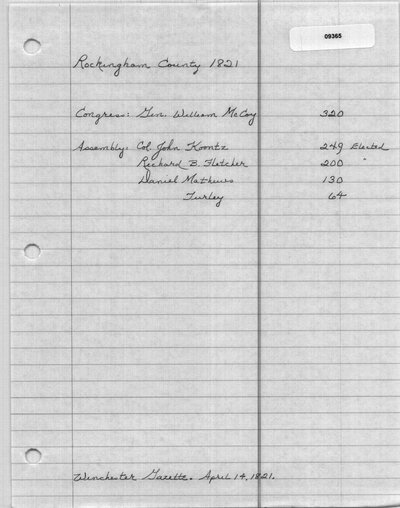 09365
Rockingham County 1821
Congress: Gen. William McCoy 320
Assembly: Col. John Koontz 249 Elected
Richard B. Fletcher 200 "
Daniel Mathews 130
Turley 64
Winchester Gazette. April 14, 1821.